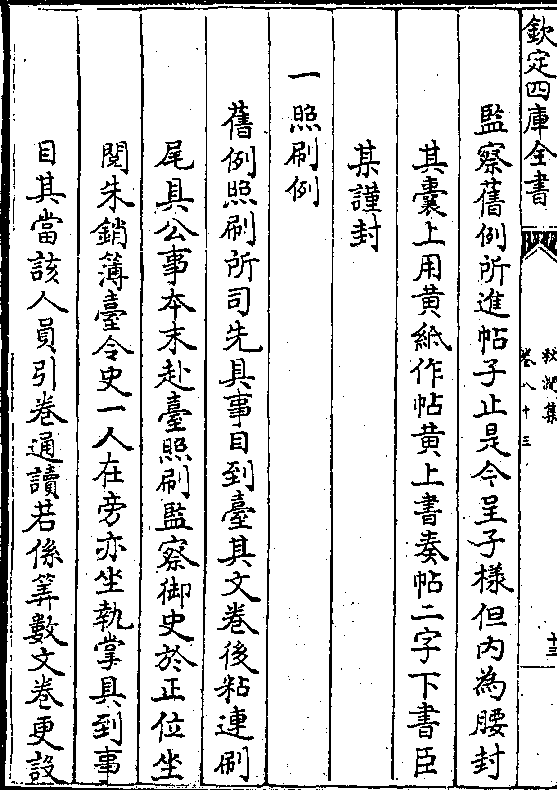 欽定四庫全書
秋澗集
卷八十三
十三
監察舊例所進帖子止是今呈子樣但内為腰封
其囊上用黄紙作帖黄上書奏帖二字下書臣
某謹封
一照刷例
舊例照刷所司先具事目到臺其文卷後粘連刷
尾具公事本末赴臺照刷監察御史於正位坐
閲朱銷簿臺令史一人在旁亦坐執掌具到事
目其當該人員引卷通讀若係筭數文卷更設